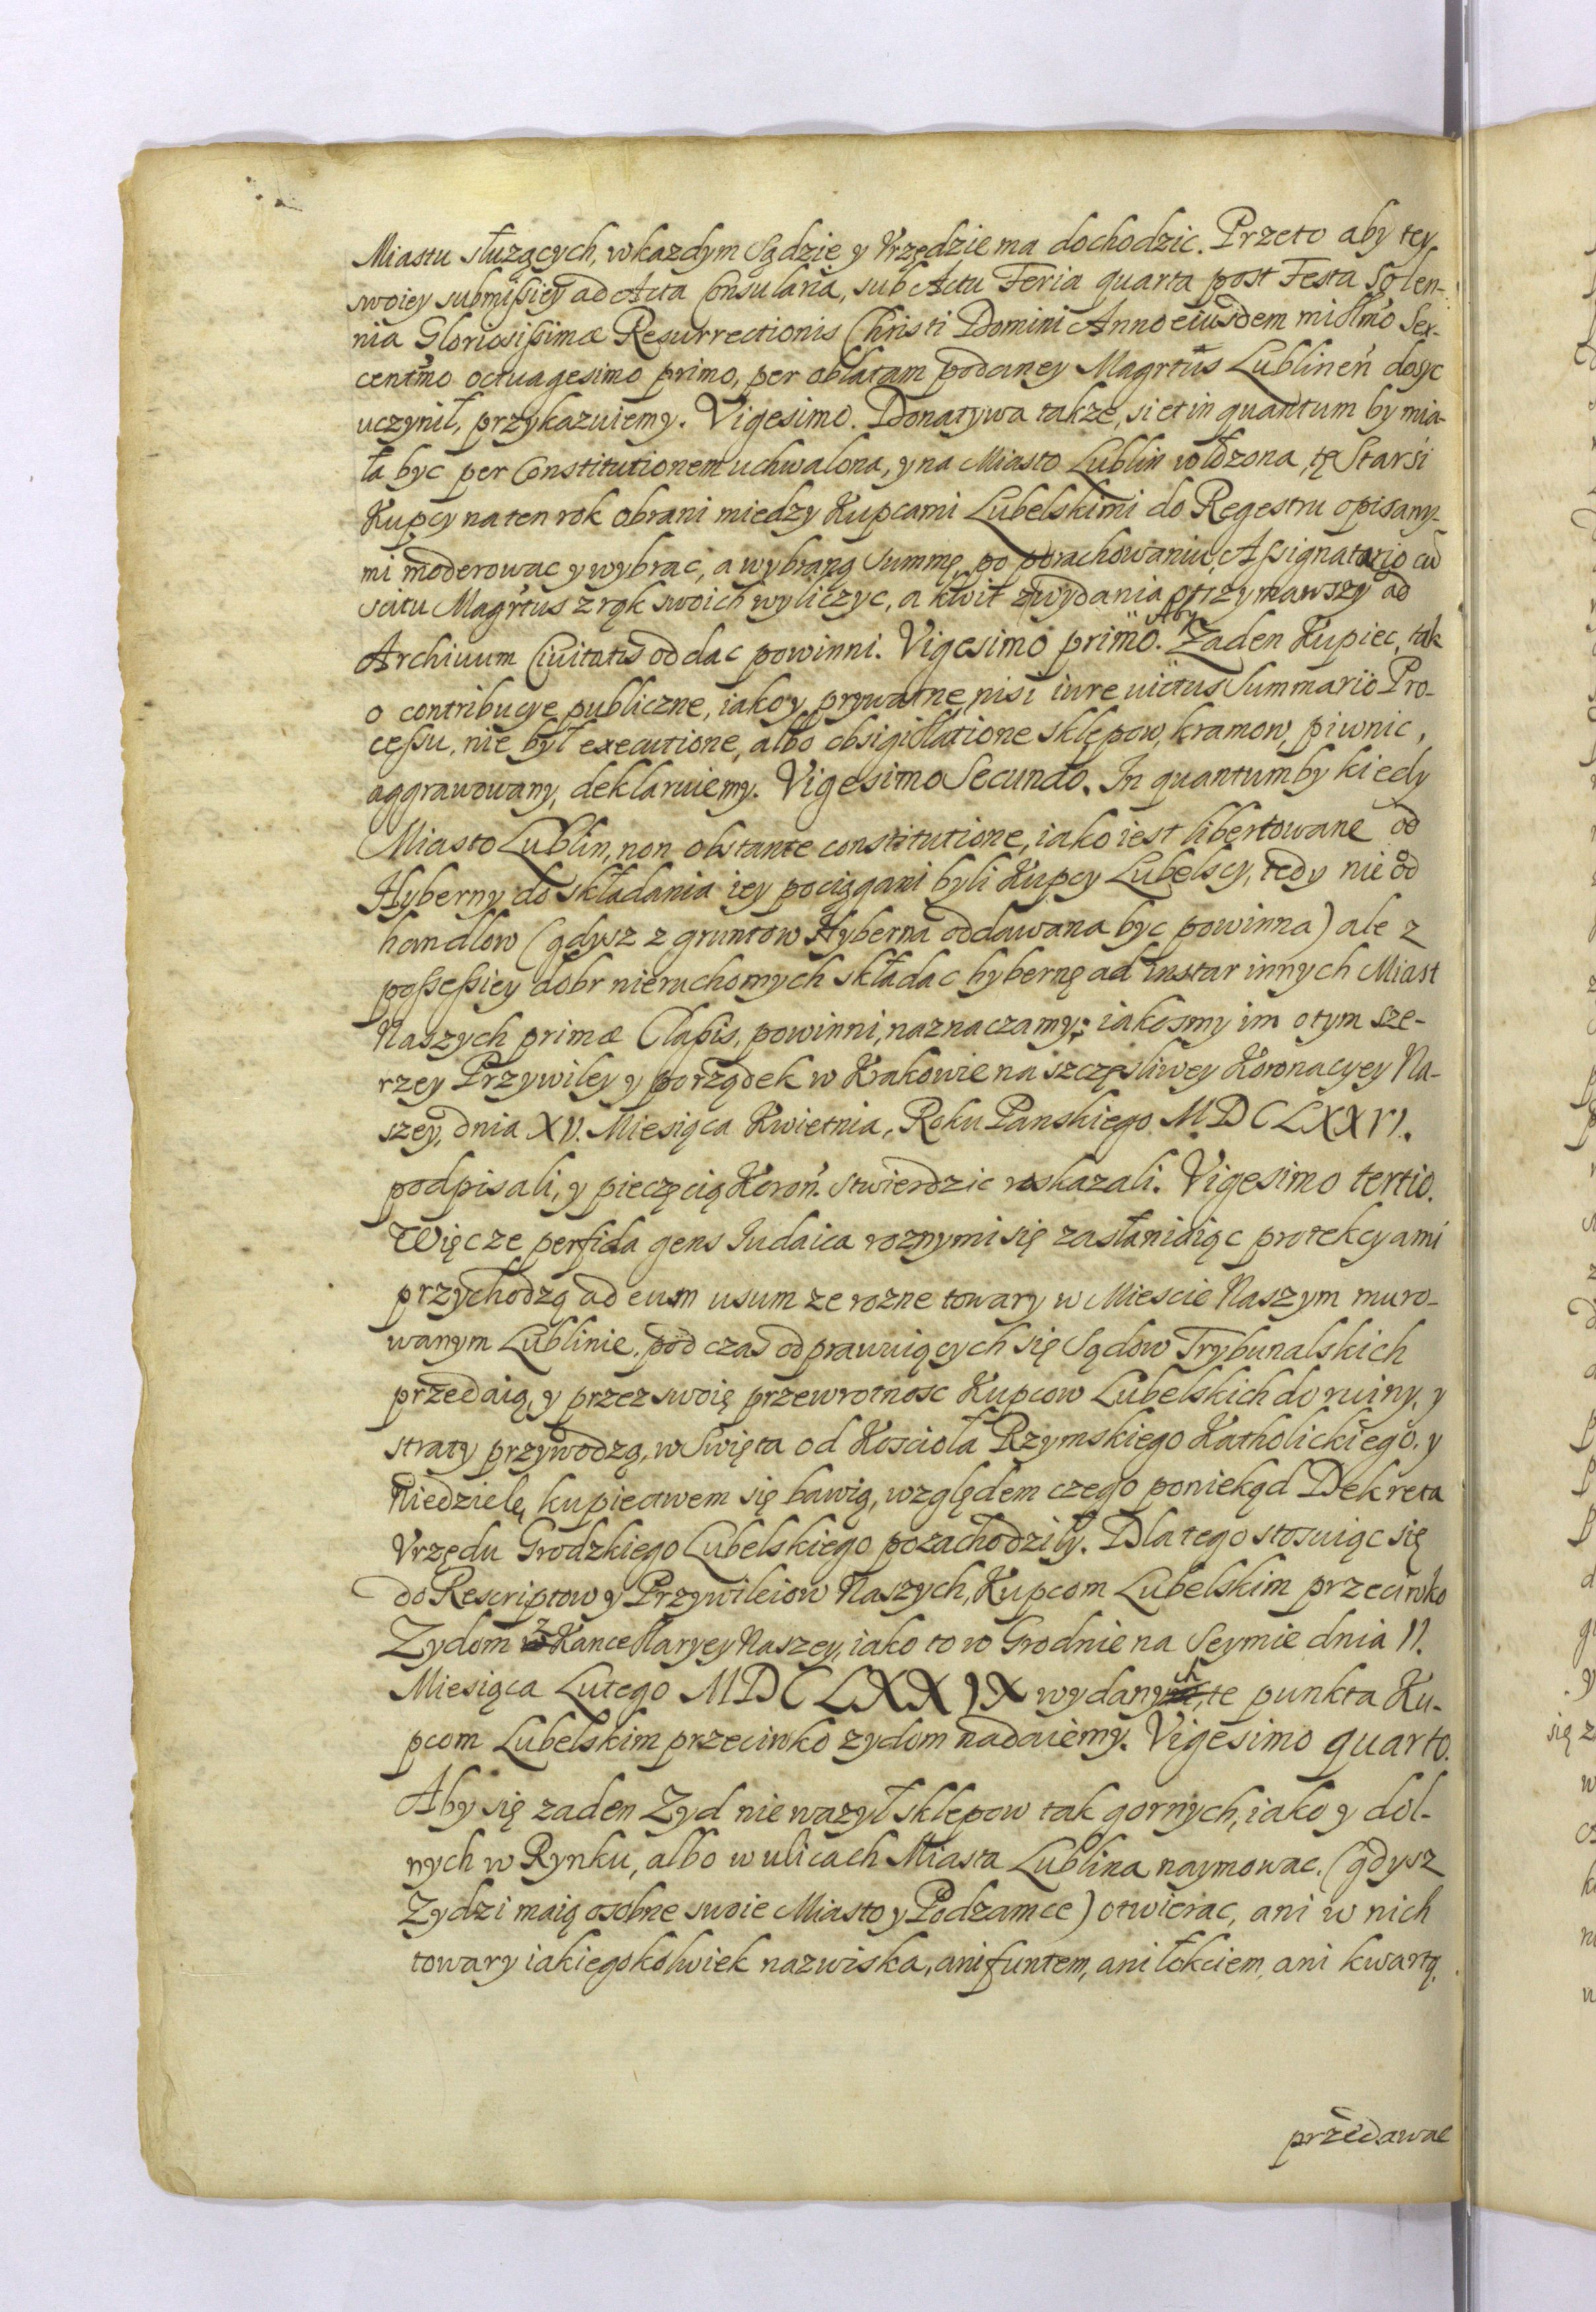 Miastu służących, w kazdym Sądzie y Vrzędzie ma dochodzic. Przeto aby tey
swoiey submißiey ad Acta Consularia, sub Actu Feria quarta post Festa Solen-
nia Gloriosißimæ Resurrectionis Christi Domini Anno eiusdem millmo Sex-
centmo octuagesimo primo, per oblatam podaney Magrtus Lublineń dosyc
uczynił, przykazuiemy. Vigesimo. Donatywa takze, si et in quantum by mia-
ła byc per Constitutionem uchwalona, y na Miasto Lublin włozona, tę Starsi
Kupcy na ten rok obrani miedzy Kupcami Lubelskimi do Regestru opisany-
mi moderowac y wybrac, a wybraną Summę, po porachowaniu, Aßignatario cu
scitu Magrtus z rąk swoich wyliczyc, a kwit z wydania otrzymawszy ad
Archiuum Ciuitatis oddac powinni. Vigesimo primo. Aby Zaden Kupiec, tak
o contribucye publiczne, iako y prywatne, nisi iure uictus Summario Pro-
ceßu, nie był executione, albo obsigillatione sklepow, kramow, piwnic,
aggrauowany, deklaruiemy. Vigesimo Secundo. In quantumby kiedy
Miasto Lublin, non obstante constitutione, iako iest libertowane od
Hyberny do składania iey pociągani byli Kupcy Lubelscy, tedy nie od
handlow (gdysz z gruntow Hyberna oddawana byc powinna) ale z
poßeßiey dobr nieruchomych składac hybernę ad instar innych Miast
Naszych primæ Claßis, powinni, naznaczamy; iakosmy im o tym sze-
rzey Przywiley y porządek w Krakowie na szczęsliwey Koronacyey Na-
szey, dnia XV. Miesiąca Kwietnia, Roku Panskiego MDCLXXVI.
podpisali, y pieczęcią Koroń. stwierdzic roskazali. Vigesimo tertio.
Więc ze perfida gens Iudaica roznymi się zasłaniaiąc protekcyami
przychodzą ad eum usum ze rozne towary w Miescie Naszym muro-
wanym Lublinie, pod czas odprawuiących się Sądow Trybunalskich
przedaią, y przez swoię przewrotnosc Kupcow Lubelskich do ruiny, y
straty przywodzą, w Swięta od Kosciola Rzymskiego Katholickiego, y
Niedzielę, kupiectwem się bawią, względem czego poniekąd Dekreta
Vrzędu Grodzkiego Lubelskiego pozachodziły. Dla tego stosuiąc się
do Rescriptow y Przywileiow Naszych, Kupcom Lubelskim przeciwko
Zydom z Kancellaryey Naszey, iako to w Grodnie na Seymie dnia 11.
Miesiąca Lutego MDCLXXIX wydanych, te punkta Ku-
pcom Lubelskim przeciwko zydom nadaiemy. Vigesimo quarto.
Aby się zaden Zyd nie wazył sklepow tak gornych, iako y dol-
nych w Rynku, albo w ulicach Miasta Lublina naymowac. (gdysz
Zydzi maią osobne swoie Miasto y Podzamce) otwierac, ani w nich
towary iakiegokolwiek nazwiska, ani funtem, ani łokciem, ani kwartą.
przedawac